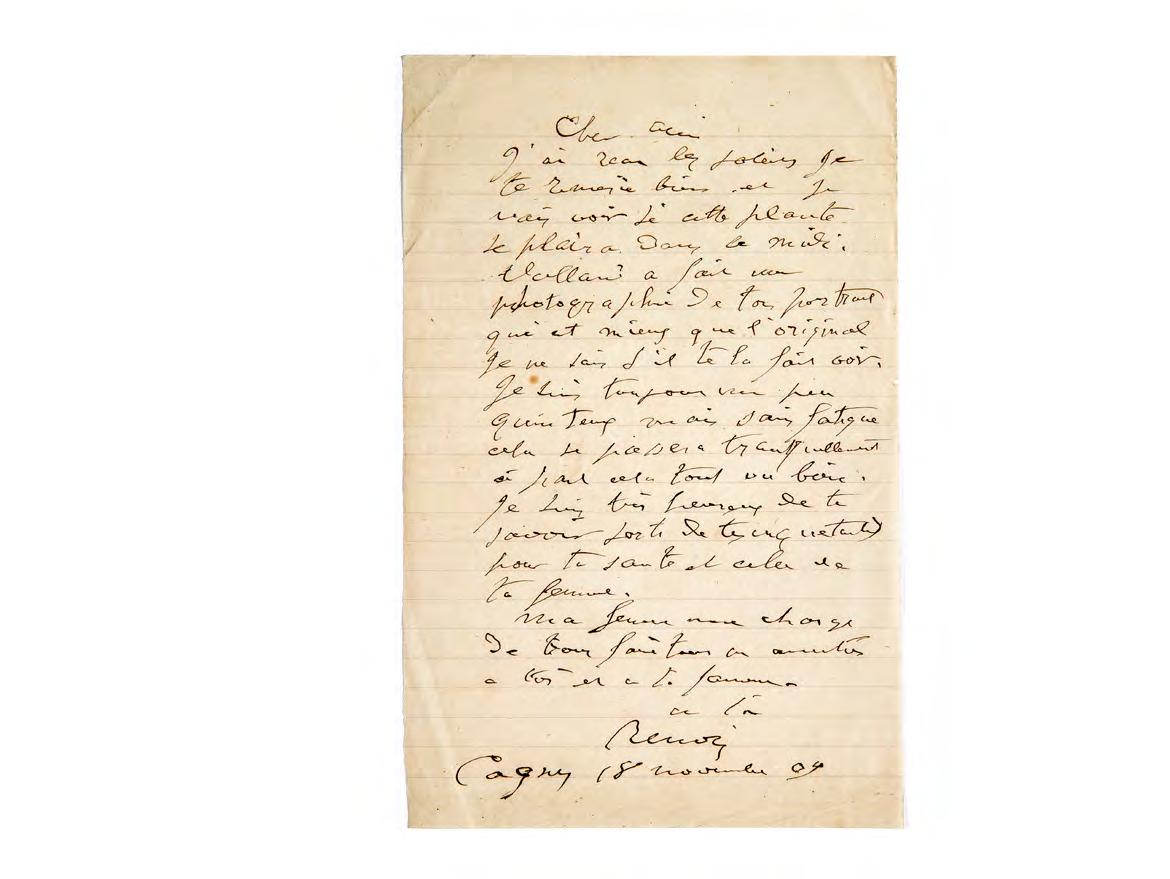 Cher ami
J'ai reçu les soleils je
te remercie bien et je
vais voir si cette plante
se plaira dans le midi.
Vollard a fait une
photographie de ton portrait
qui est mieux que l'original
Je ne sais s'il te la fait voir.
Je suis toujours un peu
quinteux mais sans fatigue
cela se passera tranquillement
à part cela tout va bien.
Je suis très heureux de te
savoir sorti de tes inquiétudes
pour ta santé et celle de
ta femme.
Ma femme me charge
de vous faire ses amitiés
a toi et a ta femme
a toi
Renoir
Cagnes 18 novembre 09